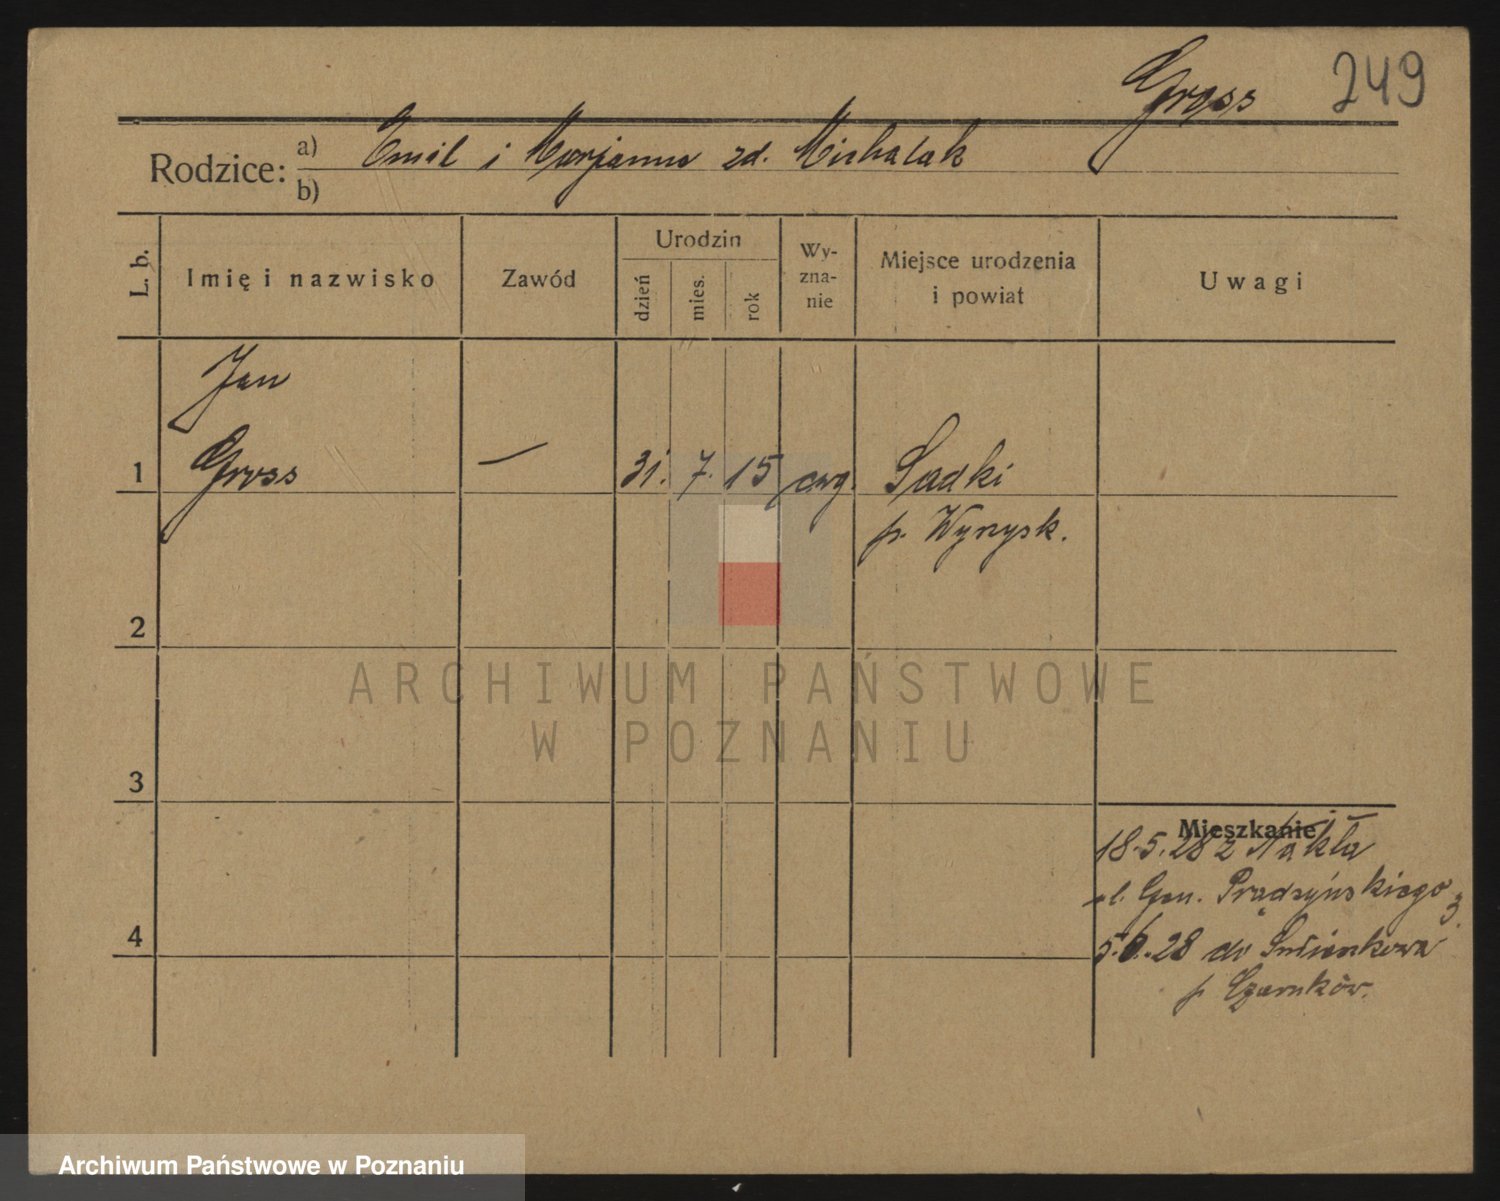 Gross 249
Rodzice: a) Emil i Marjanna zd. Michalak
b)
L. b. Imię i nazwisko Zawód Urodzin dzień mies. rok Wy-zna-nie Miejsce urodzenia i powiat Uwagi
Jan
1 Gross — 31. 7. 15 ewg. Sadki
p. Wyrzysk.
2
ARCHIWUM PAŃSTWOWE
W POZNANIU
3
Mieszkanie
18.5.28 z Nakła
ul. Gen. Prądzyńskiego 3.
4
5.6.28 do Śmieszkowa
p. Czarnków.
Archiwum Państwowe w Poznaniu